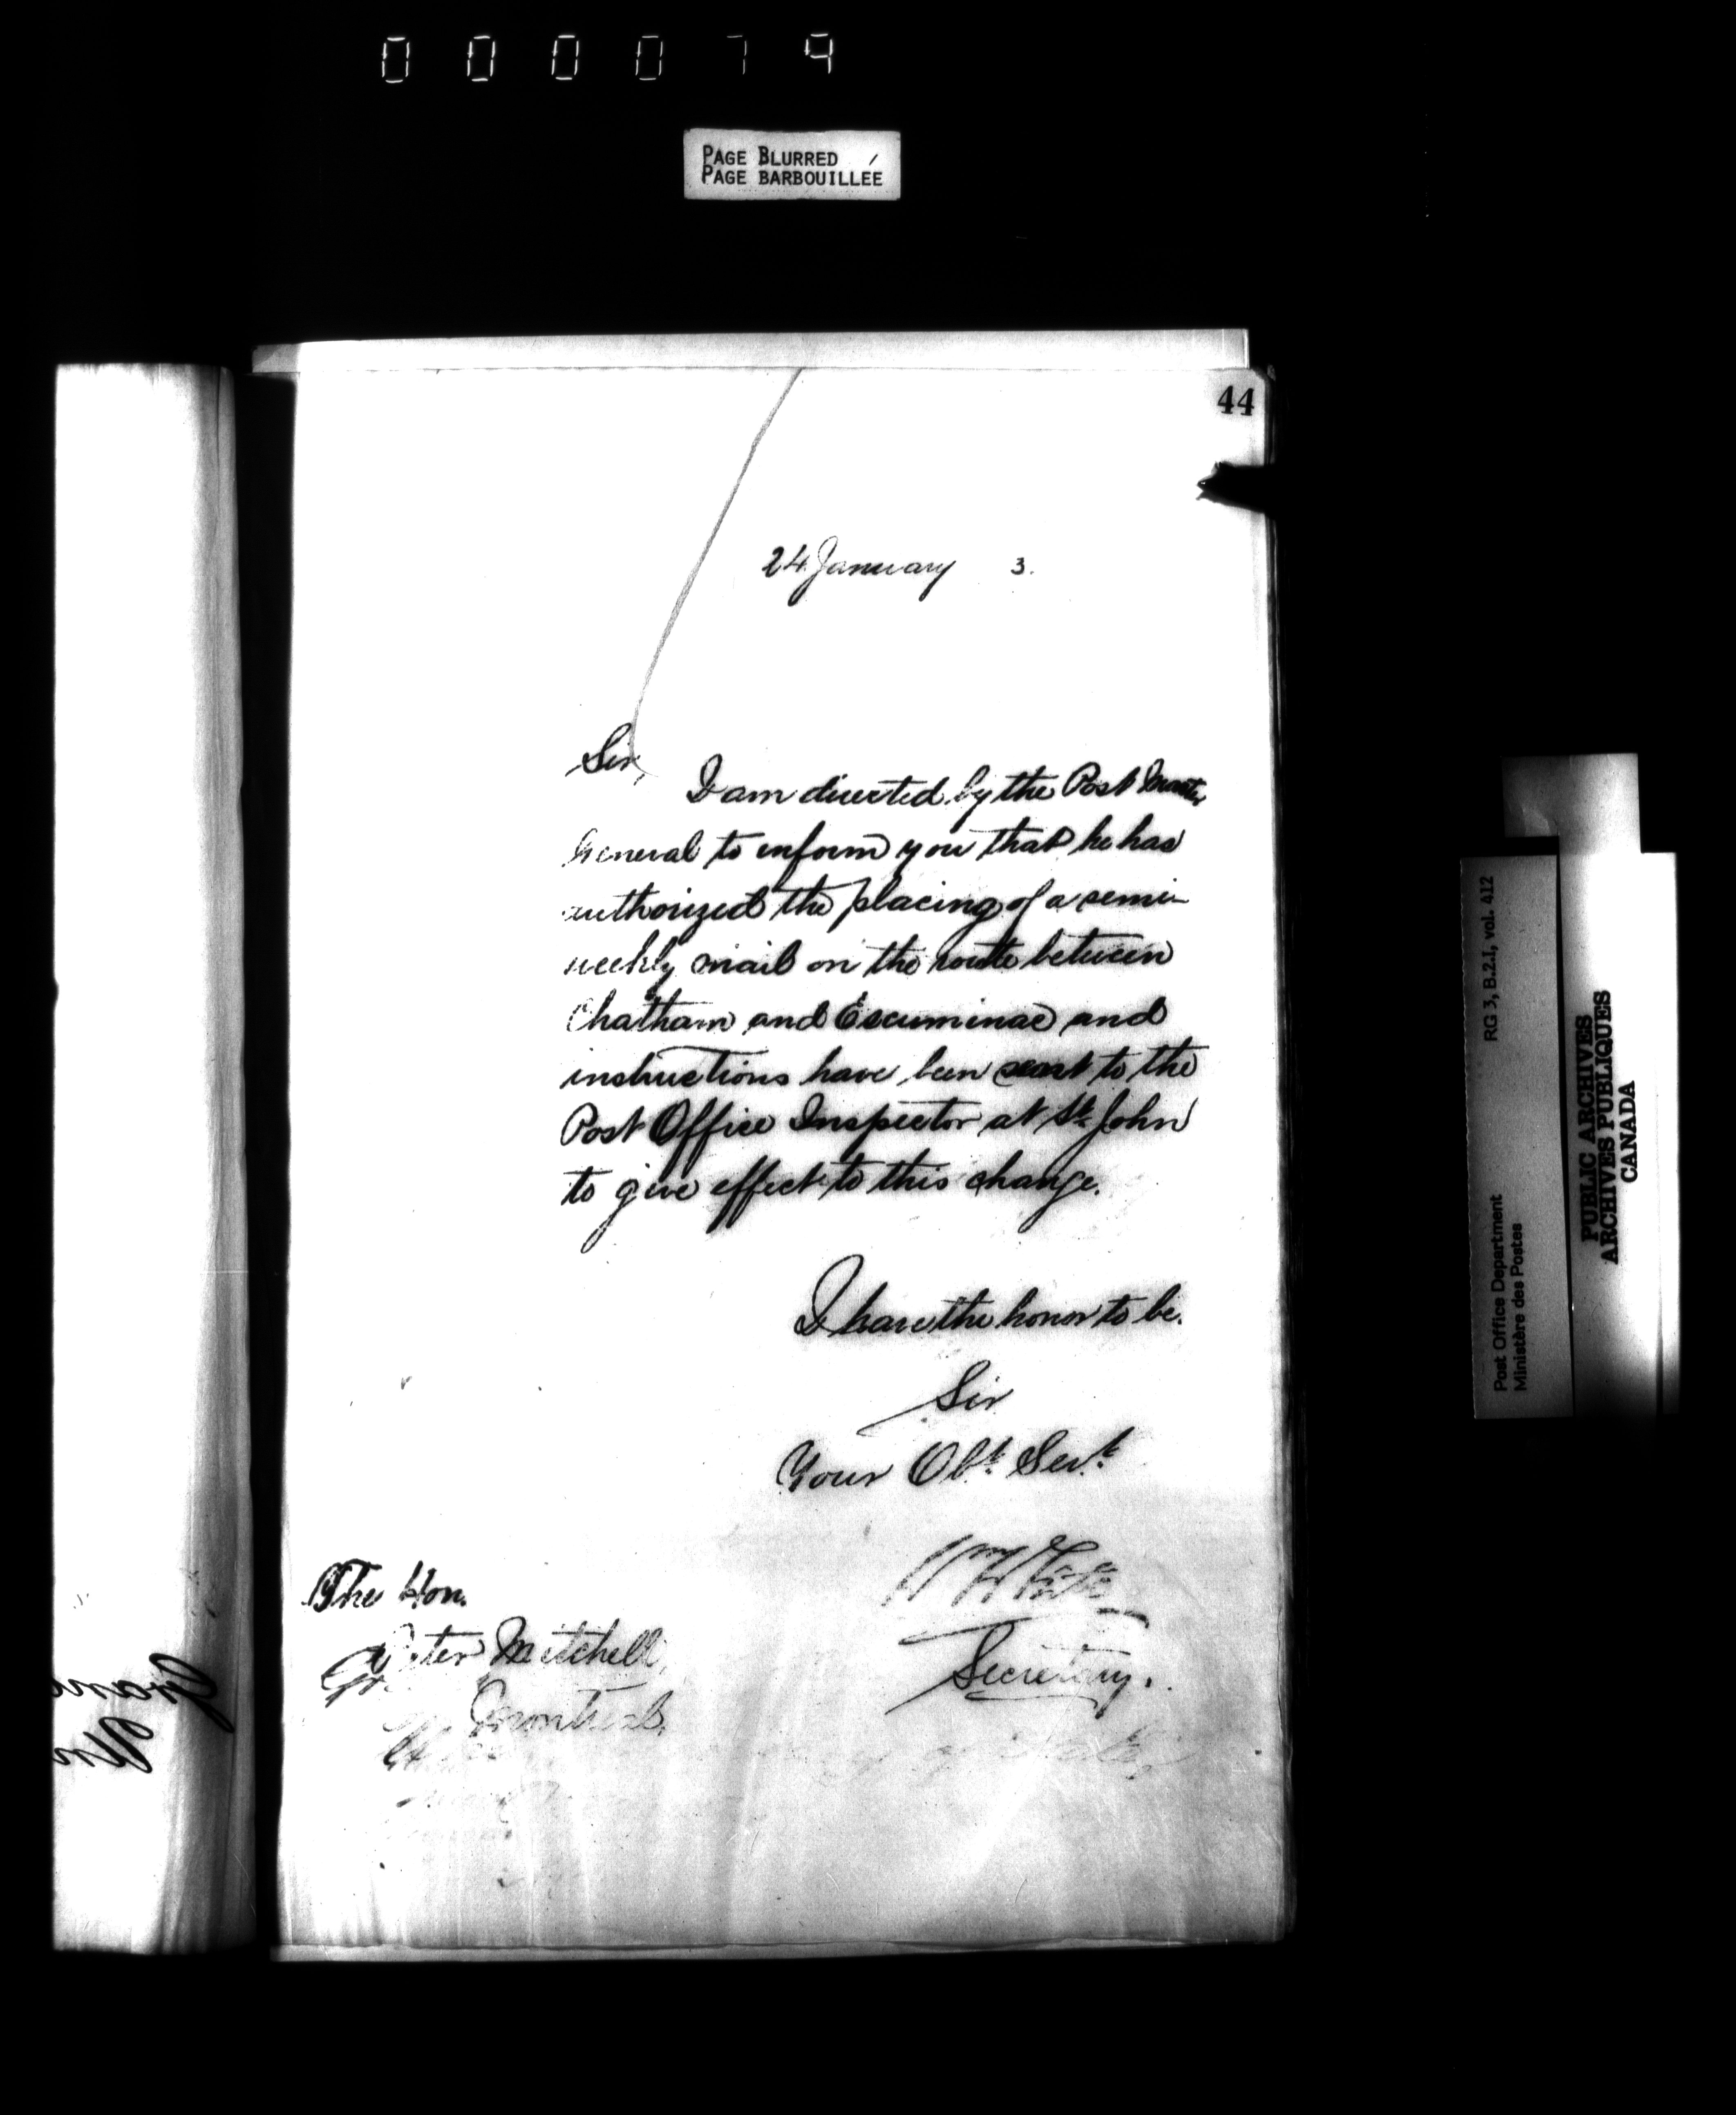 000079
PAGE BLURRED
PAGE BARBOUILLÉE
44
24 January 3.
Sir,
I am directed by the Post Master
General to inform you that he has
authorized the placing of a semi-
weekly mail on the route between
Chatham and Escuminac and
instructions have been sent to the
Post Office Inspector at St. John
to give effect to this change.
I have the honor to be.
Sir
Your Obt. Servt.
Wm White
Secretary.
The Hon.
Peter Mitchell,
Montreal.
RG 3, B.2.I, vol. 412
Post Office Department
Ministère des Postes
PUBLIC ARCHIVES
ARCHIVES PUBLIQUES
CANADA